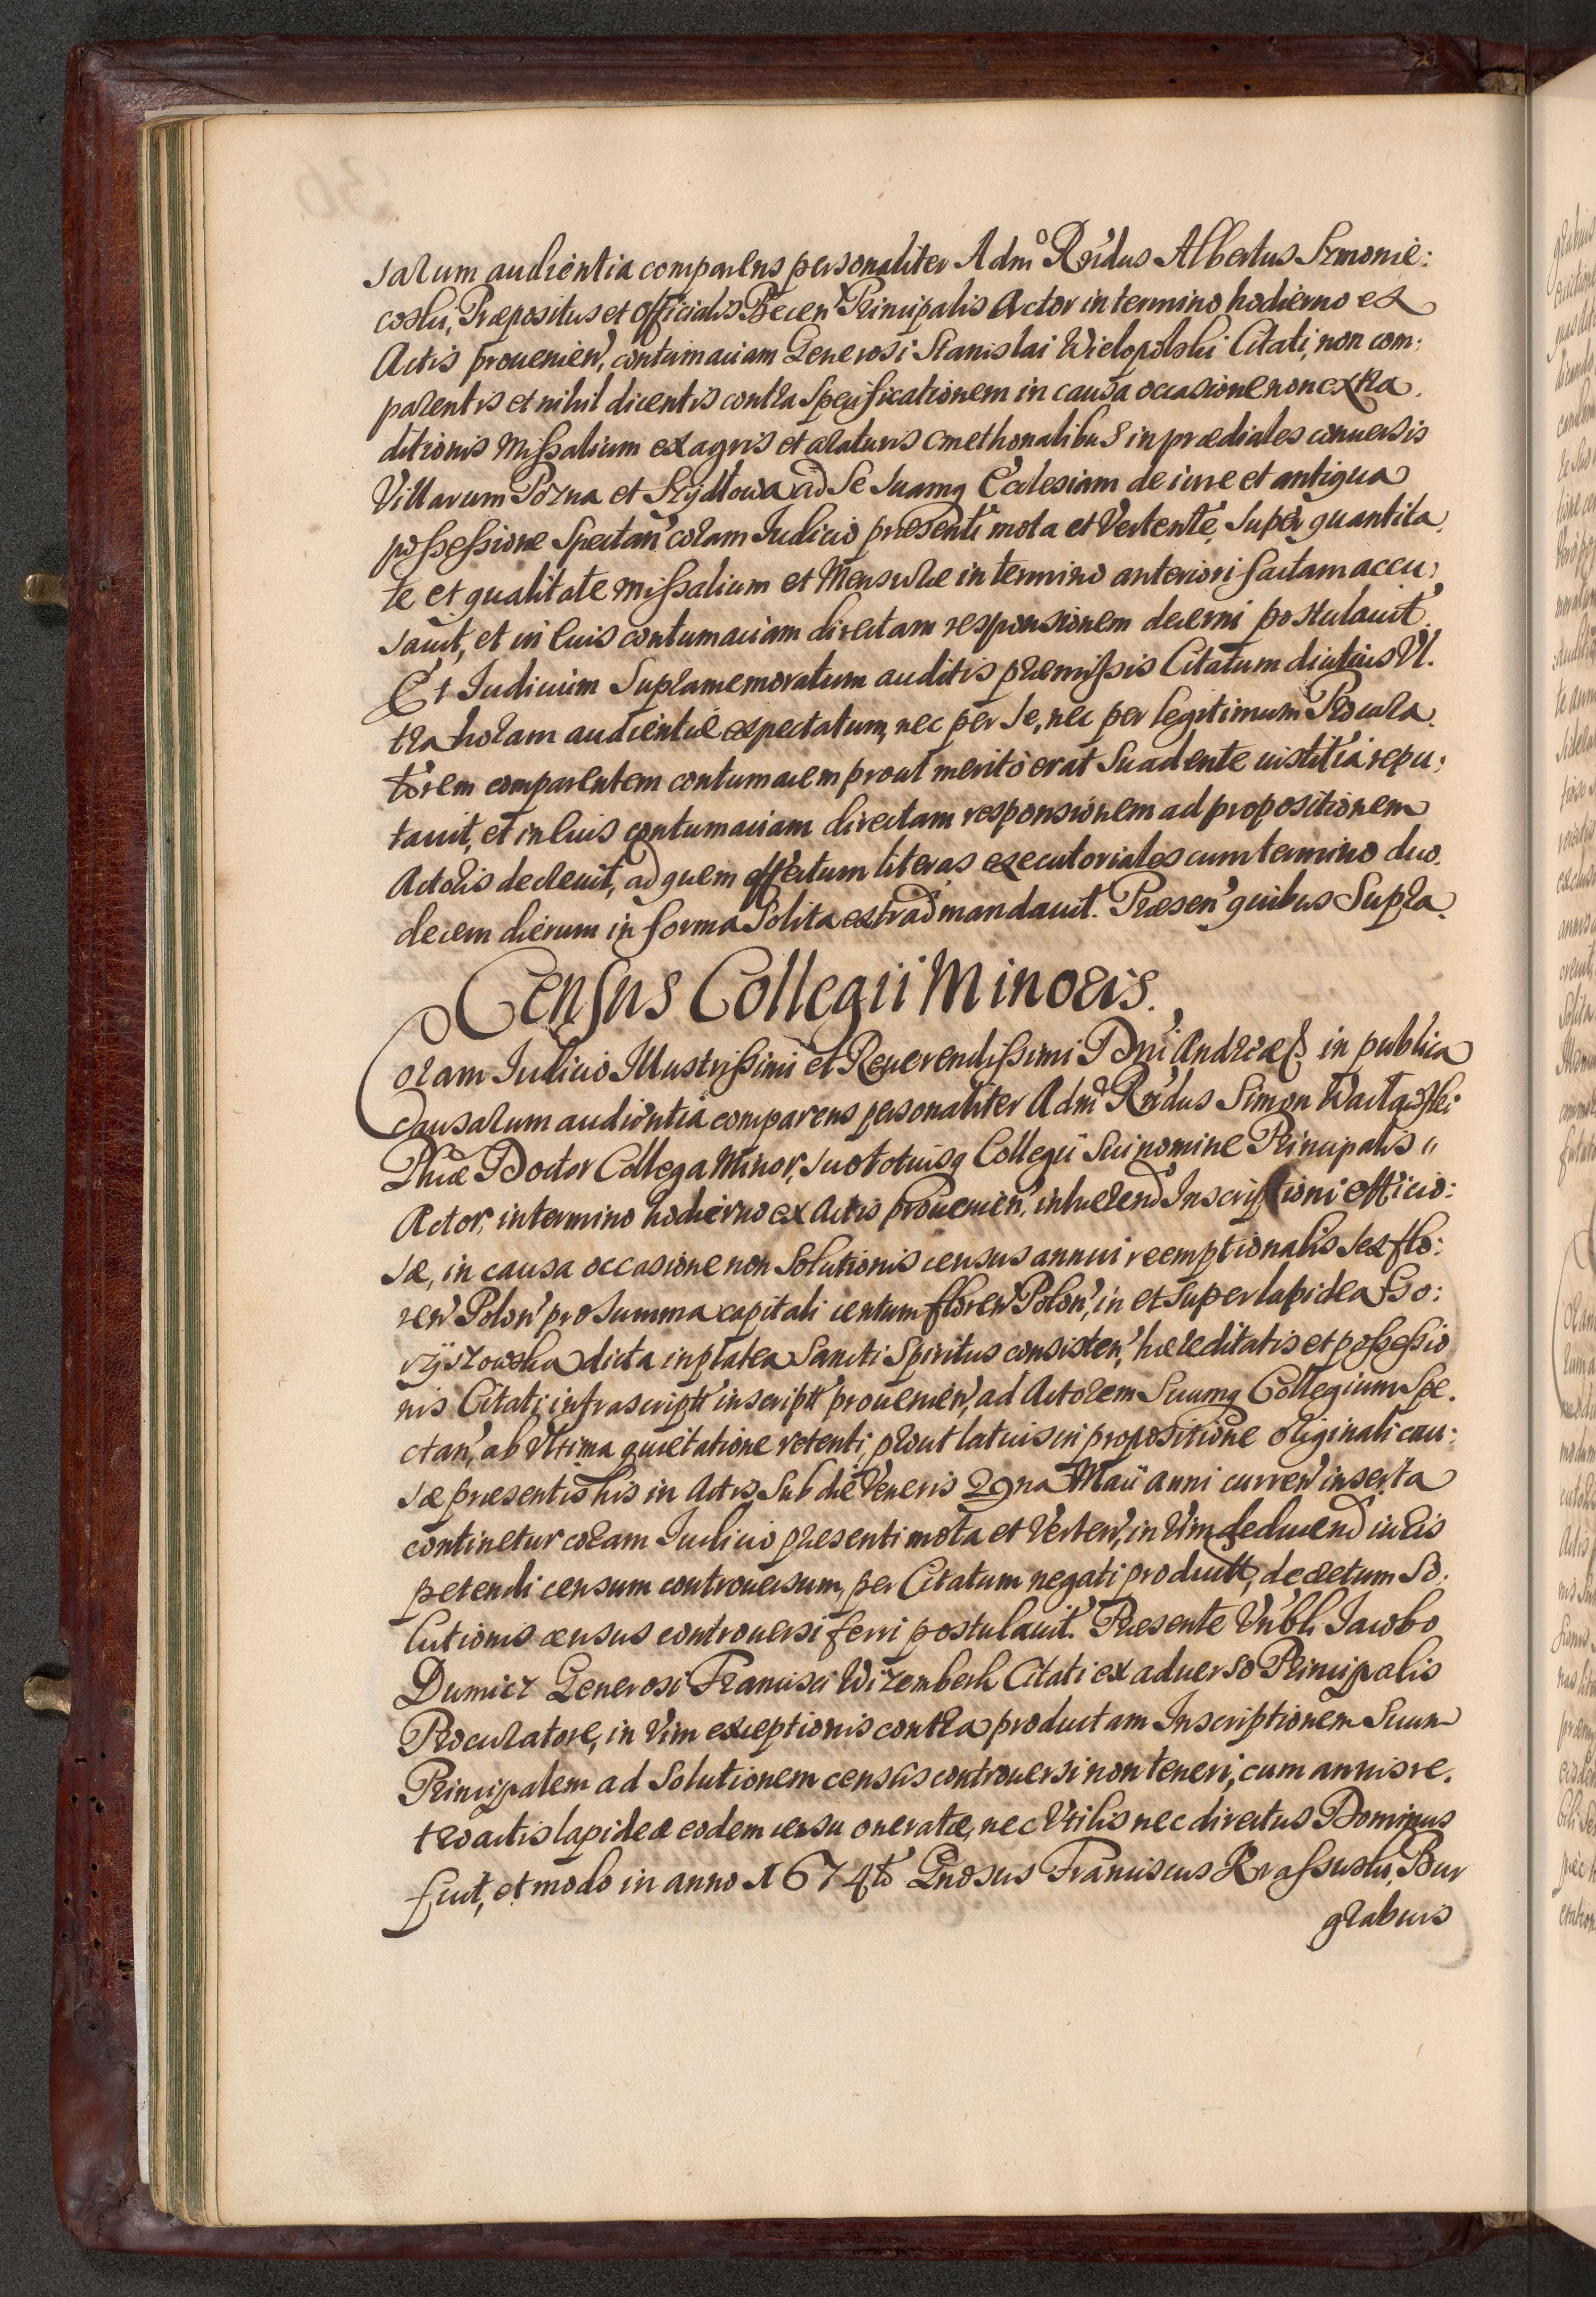 sarum audientia comparens personaliter Admo Rndus Albertus Szmonie:
coski, Præpositus et Officialis Becen Principalis Actor in termino hodierno ex
Actis prouenien', contumaciam Generosi Stanislai Wielopolski Citati, non com:
parentis et nihil dicentis contra Specificationem in causa occasione non extra.
ditionis Missalium ex agris et araturis cmethonalibus in prædiales conuersis
Villarum Pozna et Szydłowa ad Se suamq Ecclesiam de iure et antiqua
possessione Spectan' coram Iudicio præsenti mota et Vertente, Super quantita,
te et qualitate missalium et Mensuræ in termino anteriori factam accu:
sauit, et in euis contumaciam directam responsionem decerni postulauit.
Et Iudicium Supramemoratum auditis præmissis Citatum diutius Vl.
tra horam audientiæ expectatum, nec per Se, nec per legitimum Procura.
torem comparentem contumacem prout merito erat Suadente iustitia repu:
tauit, et in euis contumaciam directam responsionem ad propositionem
Actoris decreuit, ad quem effectum literas executoriales cum termino duo.
decem dierum in forma Solita extrad mandauit. Præsen' quibus Supra.
Census Collegii Minoris.
Coram Iudicio Illustrissimi et Reuerendissimi Dni Andreæ in publica
Causarum audientia comparens personaliter Admo Rndus Simon
Phiæ Doctor Collega Minor, suo totiusq Collegii Sui nomine Principalis
Actor, in termino hodierno ex Actis prouenien', inhærend Inscriptioni officio:
sæ, in causa occasione non Solutionis census annui reemptionalis sex flo:
ren' Polon' pro Summa capitali centum floren' Polon', in et super lapidea Go:
ryszowska dicta in platea Sancti Spiritus consisten', hæreditatis et possessio
nis Citati infrascriptt inscriptt prouenien', ad Actorem Suumq Collegium Spe.
ctan', ab Vltima quietatione retenti, prout latius in propositione originali cau:
sæ præsentis his in Actis Sub die Veneris 29na Maii anni curren' inserta
continetur coram Iudicio præsenti mota et Verten', in Vim deducend iuris
petendi censum controuersum, per Citatum negati productt, decretum So.
lutionis census controuersi ferri postulauit. Præsente Vnbli Iacobo
Dumicz Generosi Francisci Wizemberk Citati ex aduerso Principalis
Procuratore, in Vim exceptionis contra productam Inscriptionem Suum
Principalem ad Solutionem census controuersi non teneri, cum annis re.
troactis lapideæ eodem censu oneratæ, nec Vtilis nec directus Dominus
fuit, et modo in anno 1674to Gnosus Franciscus Krassuski, Bur
grabius